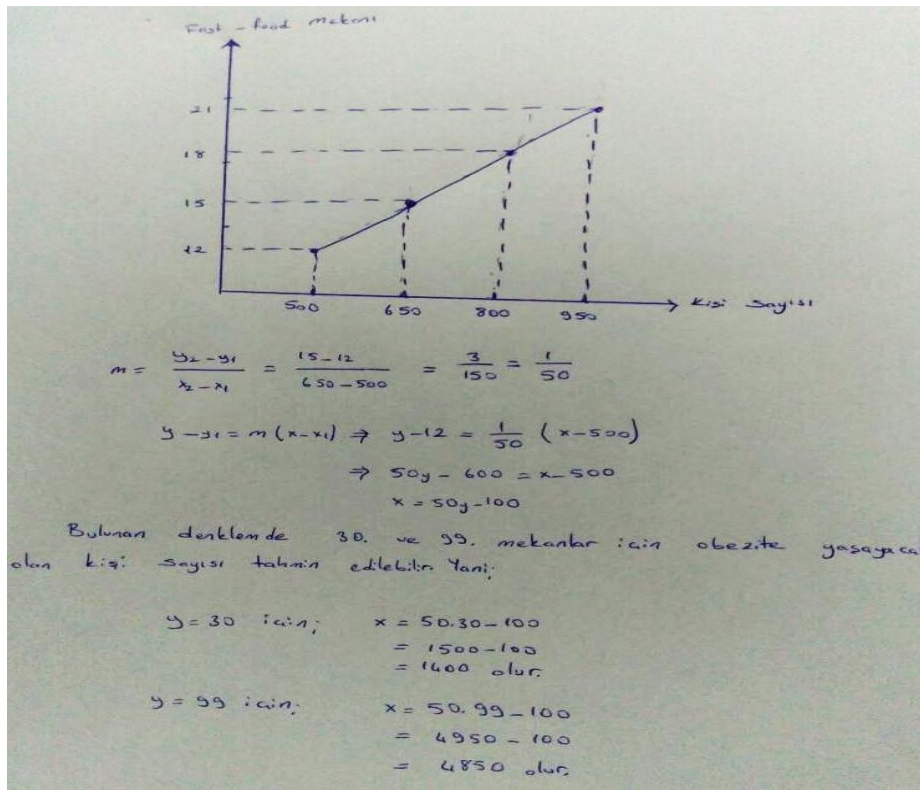 Fast-food mekanı
21
18
15
12
500 650 800 950
Kişi Sayısı
m = y₂-y₁ / x₂-x₁ = 15-12 / 650-500 = 3/150 = 1/50
y-y₁ = m(x-x₁) ⇒ y-12 = 1/50 (x-500)
⇒ 50y-600 = x-500
x = 50y-100
Bulunan denklemde 30. ve 99. mekanlar için obezite yaşayaca
olan kişi sayısı tahmin edilebilir. Yani;
y=30 için; x = 50.30-100
= 1500-100
= 1400 olur.
y = 99 için; x = 50.99-100
= 4950-100
= 4850 olur.